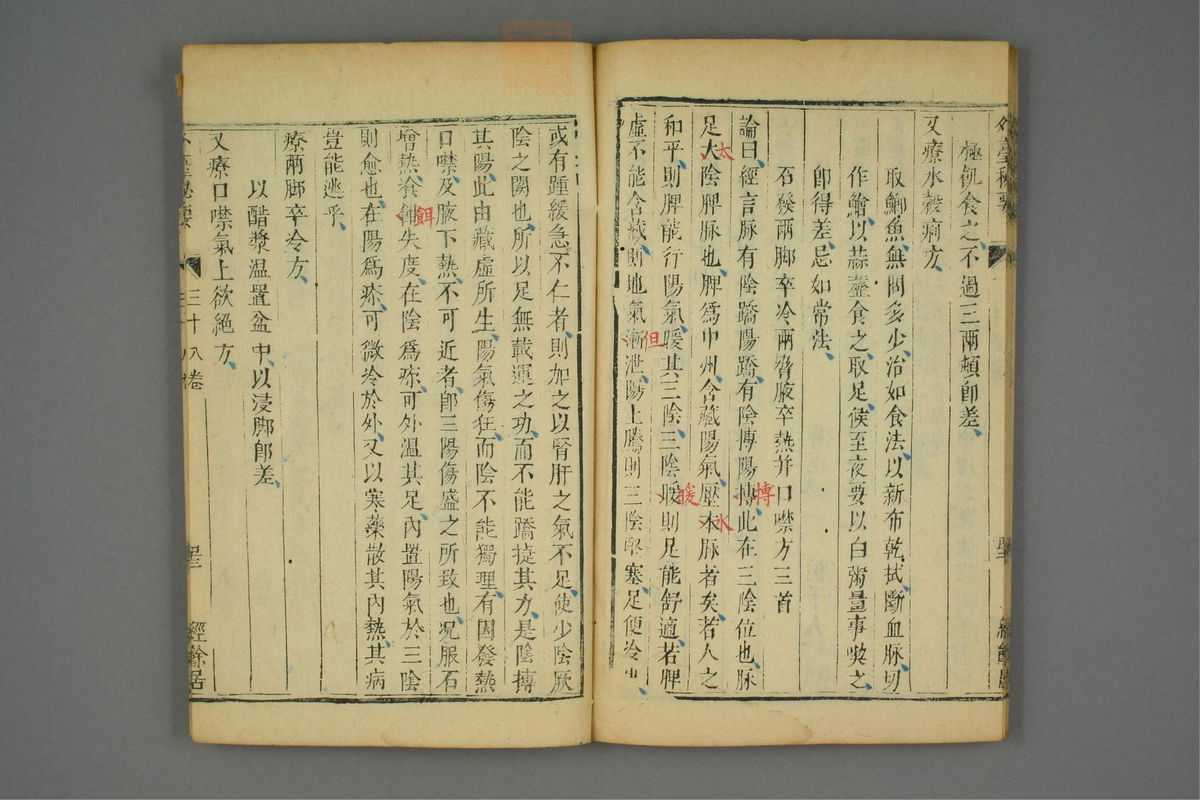 極飢食之不過三兩頓卽差
又療水穀痢方
取鯽魚無問多少治如食法以新布乾拭斷血脉切
作鱠以蒜虀食之取足候至夜要以白粥量事喫之
卽得差忌如常法
石發兩脚卒冷兩脅腋卒熱并口噤方三首
論曰經言脉有陰蹻陽蹻有陰摶陽摶此在三陰位也脉
摶
足大陰脾脉也脾爲中州含藏陽氣壓本脉者矣若人之
太
水
和平則脾能行陽氣暖其三陰三陰暖則足能舒適若脾
煖
虛不能含藏則地氣漸泄陽上騰則三陰堅塞足便冷也
但
或有踵緩急不仁者則加之以腎肝之氣不足使少陰厥
陰之關也所以足無戴運之功而不能蹻捷其方是陰摶
其陽此由藏虛所生陽氣傷在而陰不能獨理有因發熱
口噤及腋下熱不可近者卽三陽傷盛之所致也况服石
增熱飡失度在陰爲瘀可外溫其足內置陽氣於三陰
餌
則愈也在陽爲瘀可微冷於外又以寒藥散其內熱其病
豈能逃乎
療兩脚卒冷方
以醋漿溫置盆中以浸脚卽差
又療口噤氣上欲絕方
外臺秘要
三十八卷
經餘居